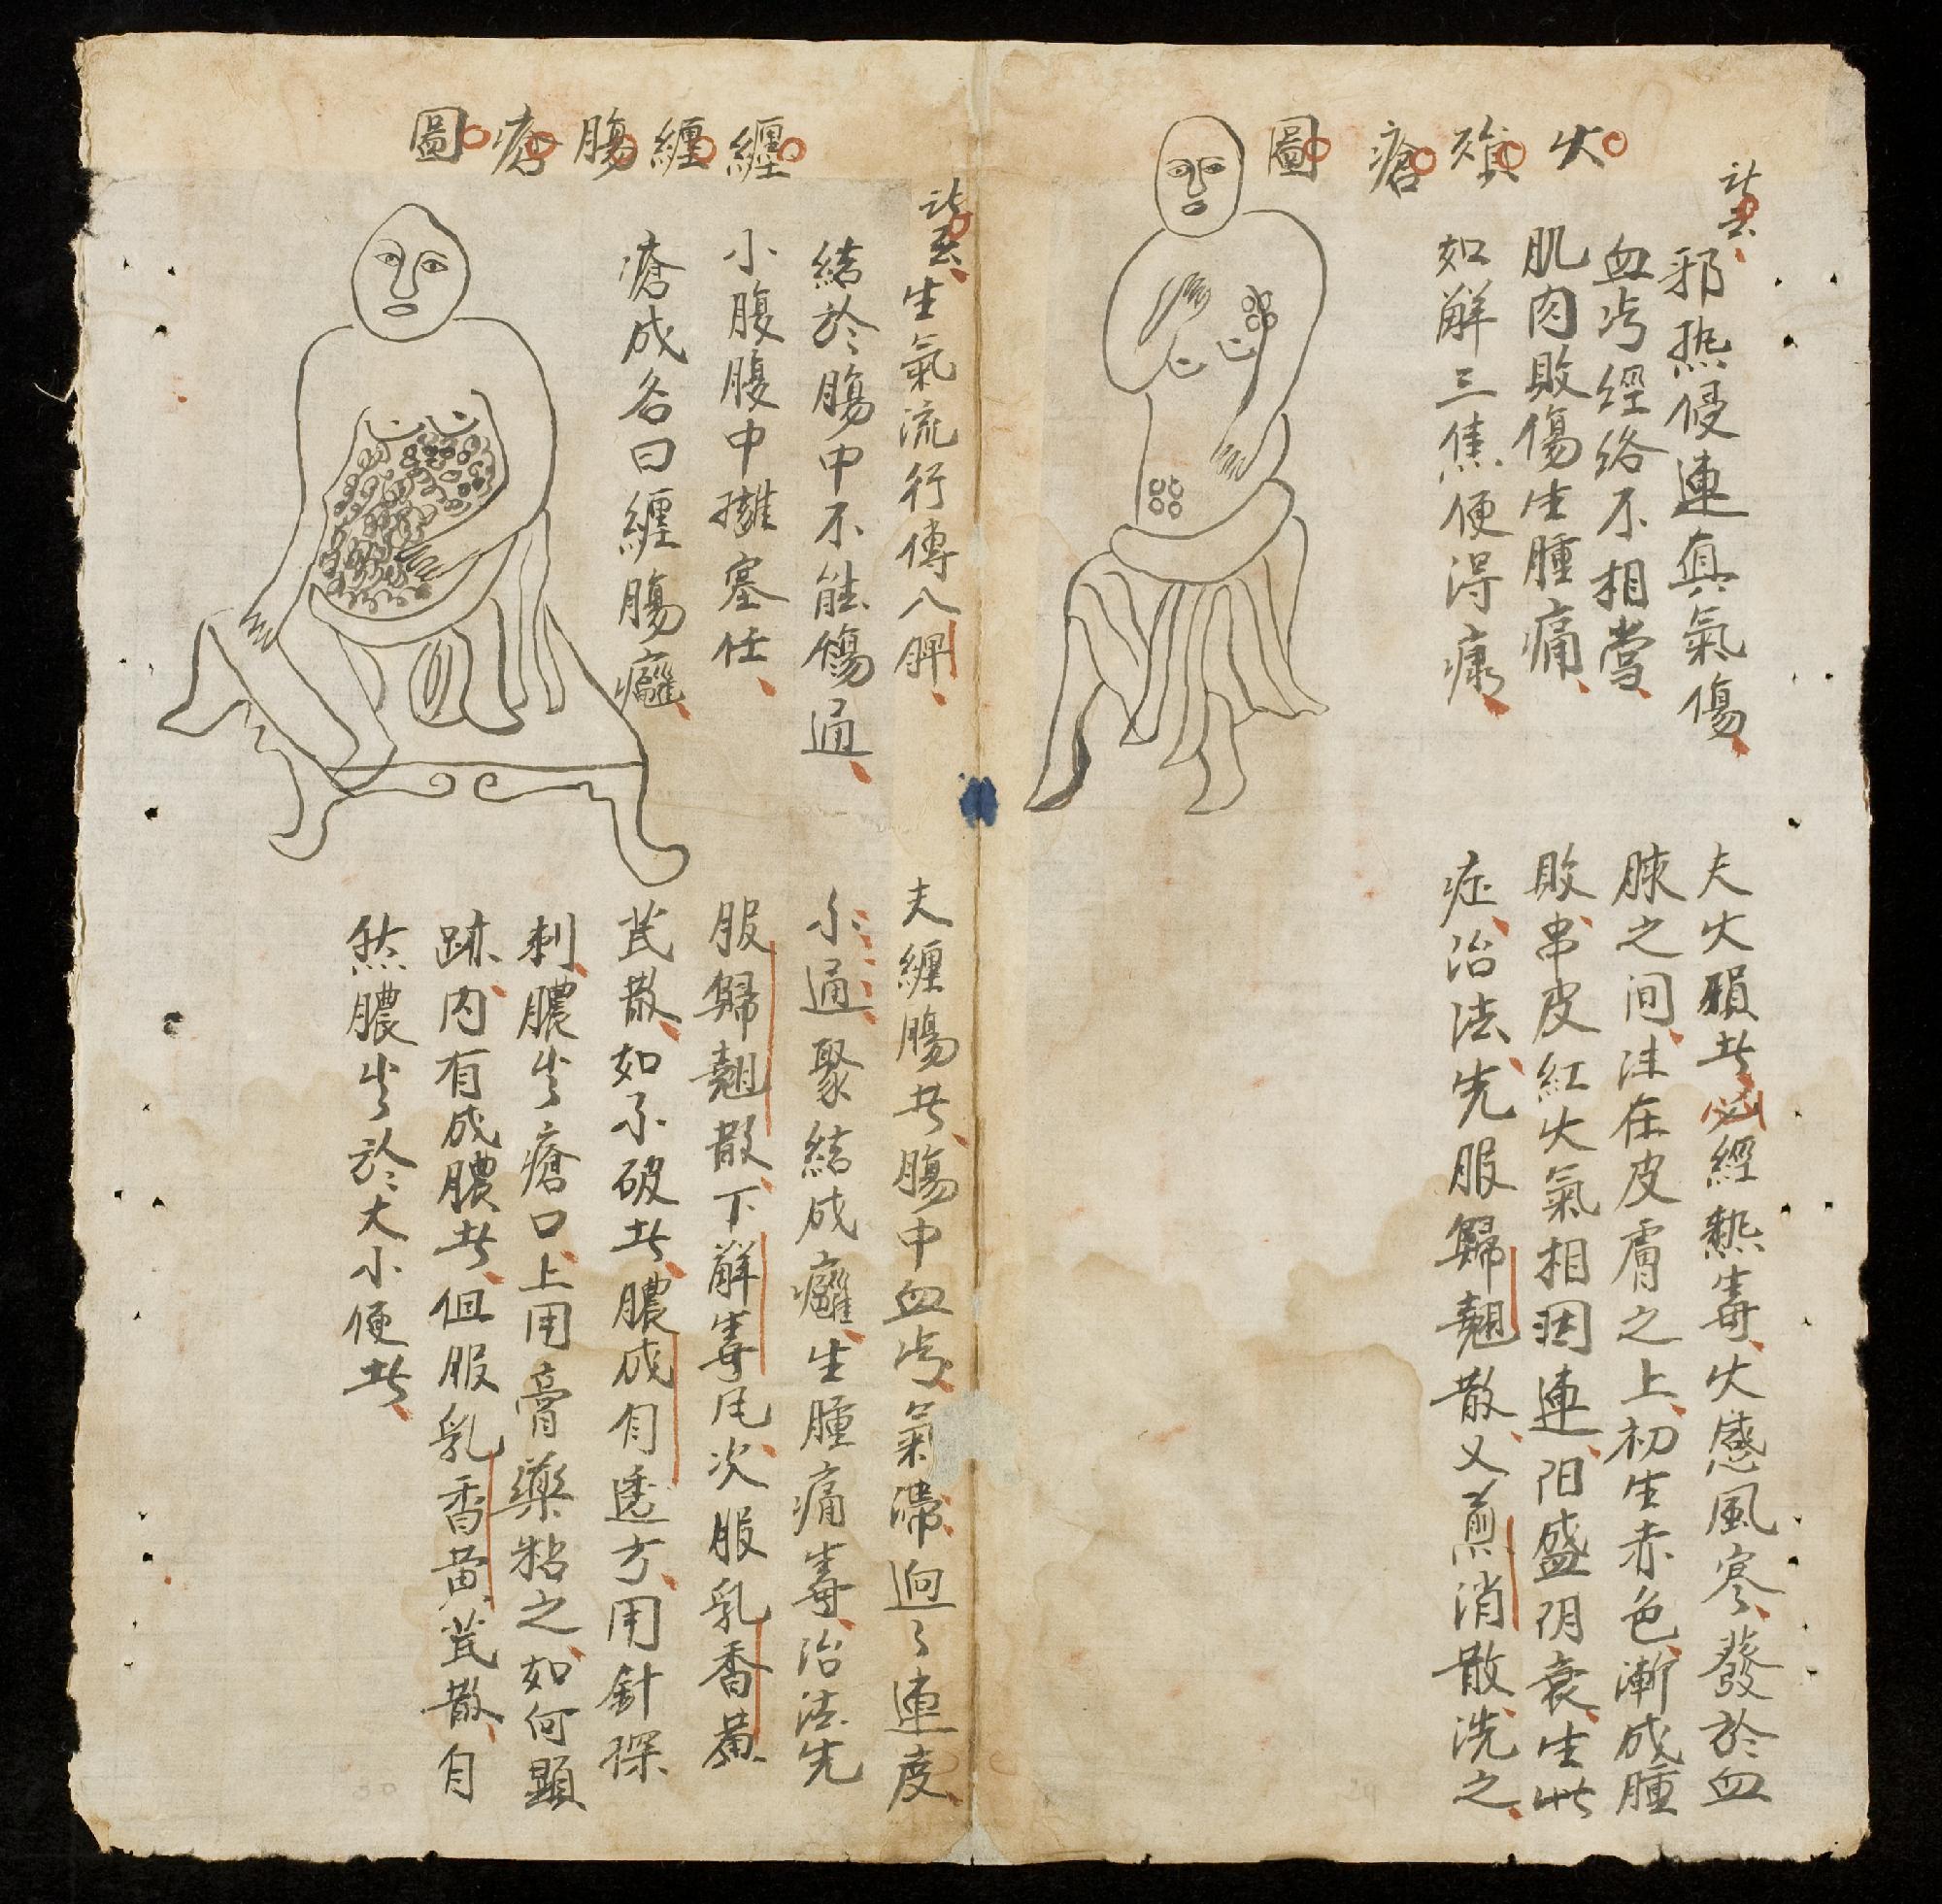 火殞瘡圖
詩云
邪热侵連真氣傷
血凝經絡不相當
肌肉敗傷生腫痛
如解三焦便得康
夫火殞者必經熱毒火感風寒發於血
脉之间注在皮膚之上初生赤色漸成腫
敗串皮紅火氣相因連阳盛阴衰生此
症治法先服歸翹散又煎消散洗之
纏纏腸瘡圖
詩云
生氣流行傳入脾
結於腸中不能傷通
小腹腹中擁塞住
瘡成名曰纏腸癰
夫纏腸者腸中血凝氣滯迥々連度
不通聚結成癰生腫痛毒治法先
服歸翹散下解毒凡次服乳香黃
芪散如不破者膿成自透方用針探
刺膿出瘡口上用膏藥粘之如何顕
跡内有成膿者但服乳香黄芪散自
然膿出於大小便者